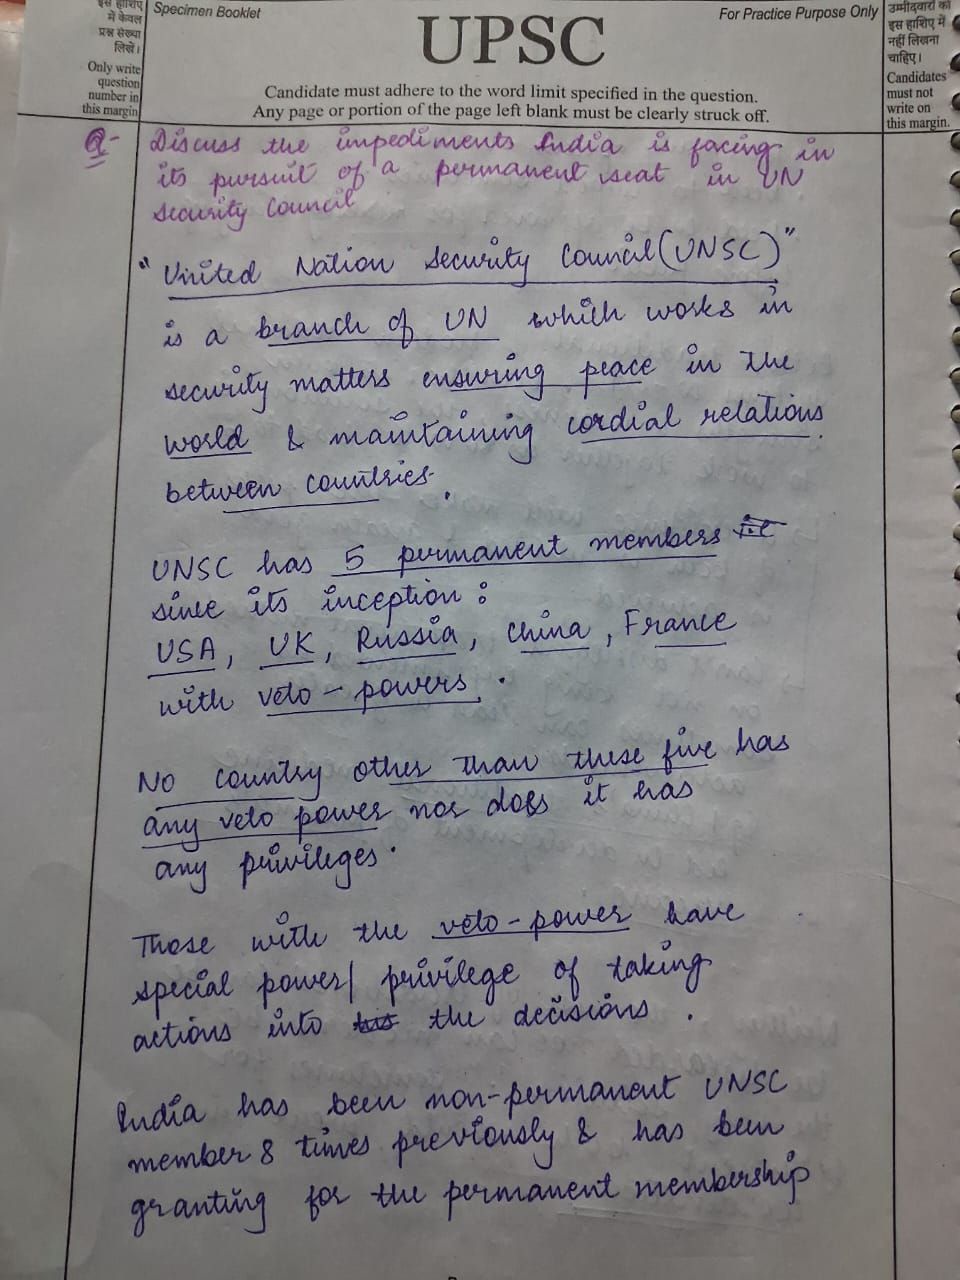 इस हाशिए
में केवल
प्रश्न संख्या
लिखें।
Only write
question
number in
this margin
Specimen Booklet
For Practice Purpose Only
UPSC
Candidate must adhere to the word limit specified in the question.
Any page or portion of the page left blank must be clearly struck off.
उम्मीदवारों को
इस हाशिए में
नहीं लिखना
चाहिए।
Candidates
must not
write on
this margin.
Q- Discuss the impediments India is facing in
its pursuit of a permanent seat in UN
Security Council
"United Nation Security Council (UNSC)"
is a branch of UN which works in
security matters ensuring peace in the
world & maintaining cordial relations
between countries.
UNSC has 5 permanent members
since its inception :
USA, UK, Russia, China, France
with veto-powers.
No country other than these five has
any veto power nor does it has
any privileges.
Those with the veto-power have
special power/ privilege of taking
actions into the decisions.
India has been non-permanent UNSC
member 8 times previously & has been
granting for the permanent membership